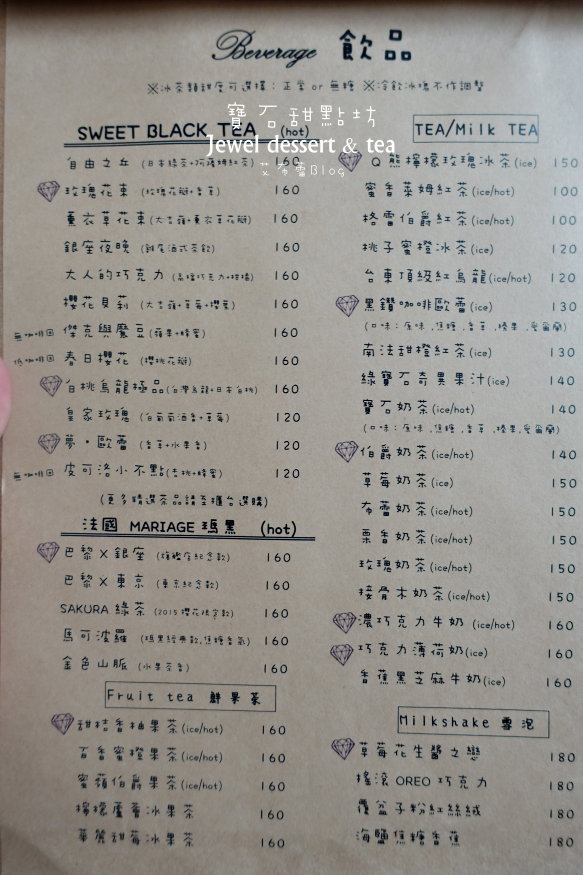 Beverage 飲品
※冰茶類甜度可選擇：正常 or 無糖 ※冷飲冰塊不作調整
寶石甜點坊
Jewel dessert & tea
艾布蕾Blog
SWEET BLACK TEA (hot)
自由之丘 (日本綠茶+阿薩姆紅茶) 160
玫瑰花束 (玫瑰花瓣+香草) 160
薰衣草花束 (大吉嶺+薰衣草花瓣) 160
銀座夜晚 (雞尾酒式茶飲) 160
大人的巧克力 (高檔巧克力+柑橘) 160
櫻花貝莉 (大吉嶺+草莓+櫻葉) 160
無咖啡因 傑克與魔豆 (蘋果+蜂蜜) 160
低咖啡因 春日櫻花 (櫻桃花瓣) 160
白桃烏龍極品 (台灣烏龍+日本白桃) 160
皇家玫瑰 (白葡萄酒香+草莓) 120
夢・歐蕾 (香草+水果香) 120
無咖啡因 皮可洛小不點 (杏桃+蜂蜜) 120
(更多精選茶品請至櫃台選購)
法國 MARIAGE 瑪黑 (hot)
巴黎X銀座 (旗艦店紀念款) 160
巴黎X東京 (東京紀念款) 160
SAKURA 綠茶 (2015櫻花限定款) 160
馬可波羅 (瑪黑經典款,焦糖香氣) 160
金色山脈 (水果茶香) 160
Fruit tea 鮮果茶
甜桔香柚果茶 (ice/hot) 160
百香蜜橙果茶 (ice/hot) 160
蜜蘋伯爵果茶 (ice/hot) 160
檸檬蘆薈冰果茶 160
華麗甜莓冰果茶 160
TEA/Milk TEA
Q熊檸檬玫瑰冰茶 (ice) 150
蜜香萊姆紅茶 (ice/hot) 100
格雷伯爵紅茶 (ice/hot) 100
桃子蜜橙冰茶 (ice) 120
台東頂級紅烏龍 (ice/hot) 120
黑鑽咖啡歐蕾 (ice) 130
(口味：原味,焦糖,香草,榛果,愛爾蘭)
南法甜橙紅茶 (ice) 130
綠寶石奇異果汁 (ice) 140
寶石奶茶 (ice/hot) 140
(口味：原味,焦糖,香草,榛果,愛爾蘭)
伯爵奶茶 (ice/hot) 140
草莓奶茶 (ice) 150
布蕾奶茶 (ice/hot) 150
栗香奶茶 (ice/hot) 150
玫瑰奶茶 (ice/hot) 150
接骨木奶茶 (ice/hot) 150
濃巧克力牛奶 (ice/hot) 160
巧克力薄荷奶 (ice) 160
香蕉黑芝麻牛奶 (ice) 160
Milkshake 雪泡
草莓花生醬之戀 180
搖滾 OREO 巧克力 180
覆盆子粉紅絲絨 180
海鹽焦糖香蕉 180